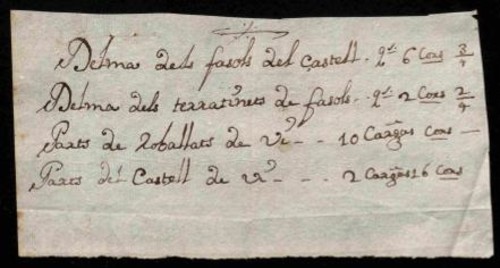 Delma dels fasols del Castell. qt. 6 Cors 3/4
Delma dels terratinets de fasols. qt. 2 Cors 2/4
Parts de Roballats de Vi - - 10 Cargas Cors —
Parts del Castell de vi - - - 2 Cargas 16 Cors